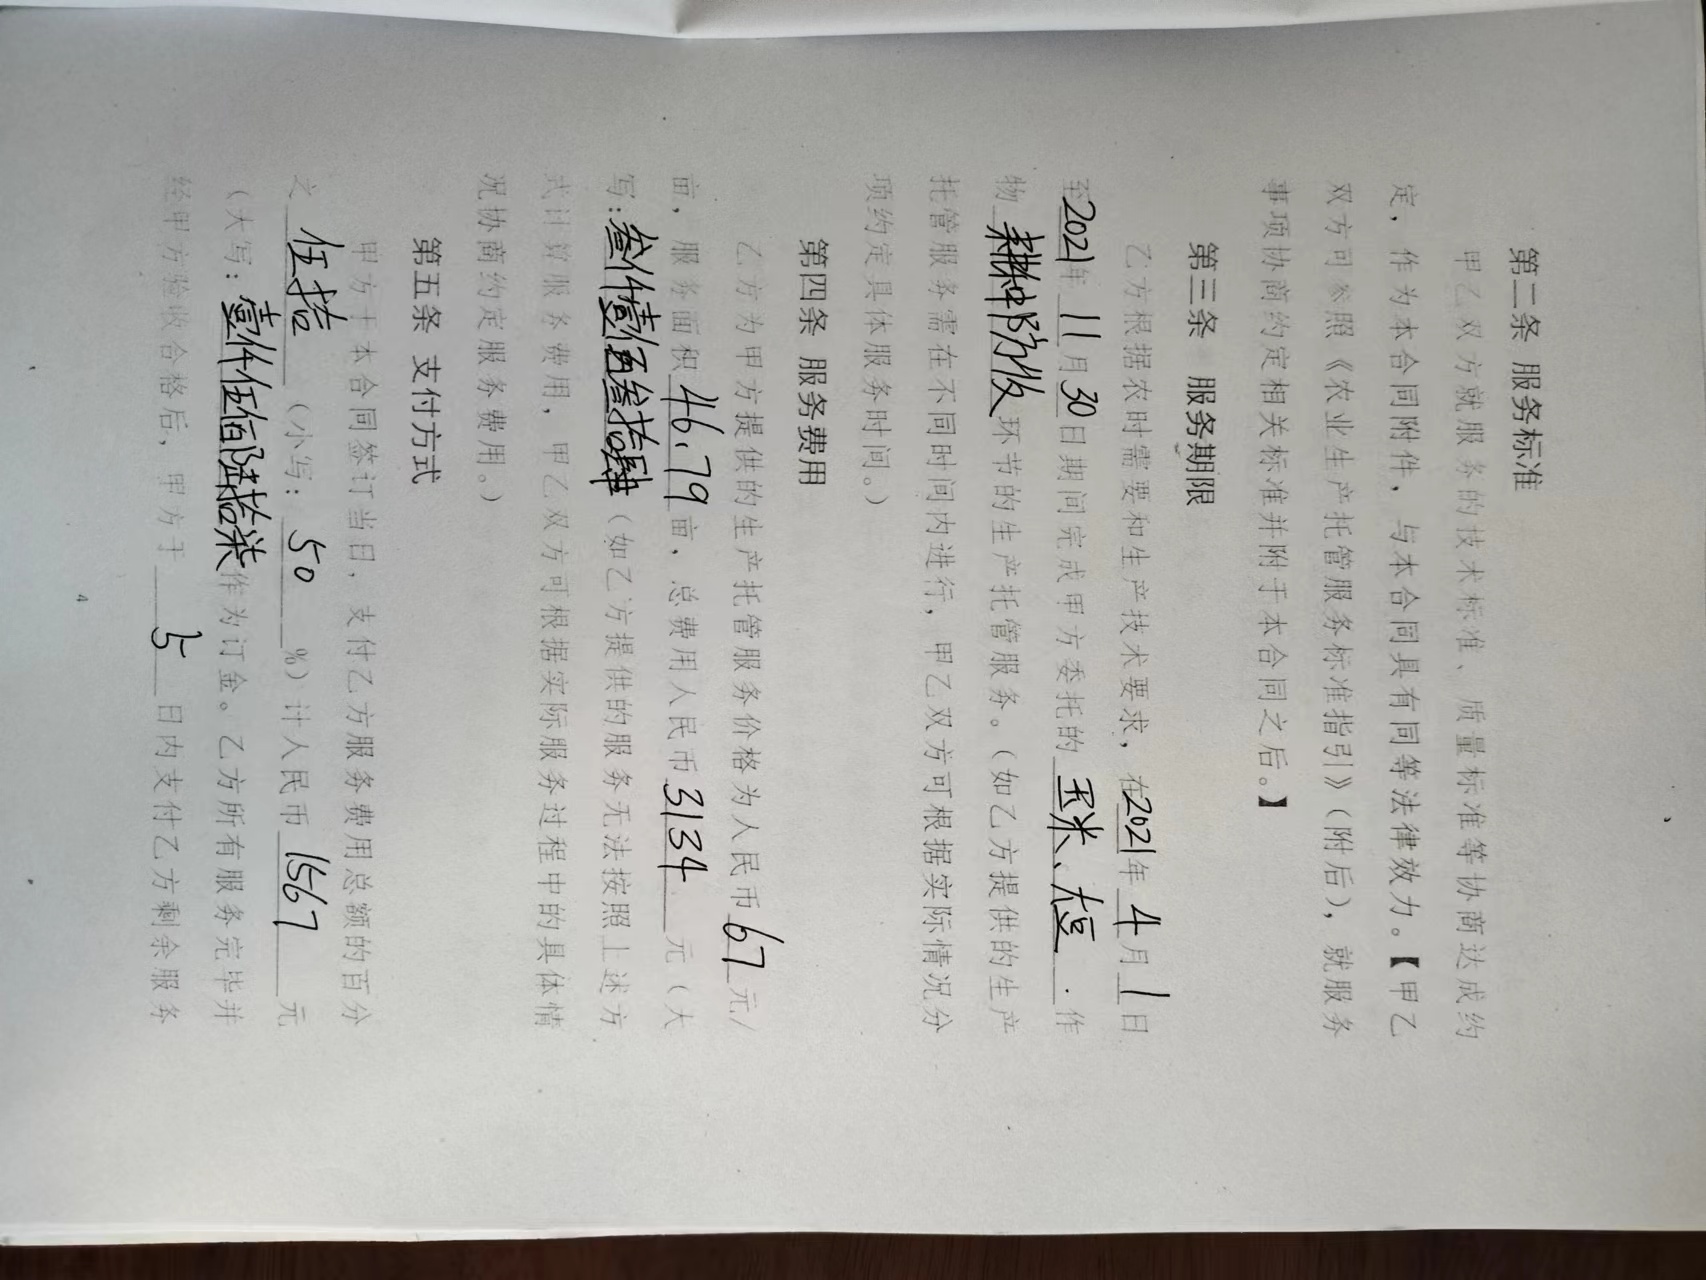 第二条 服务标准
甲乙双方就服务的技术标准、质量标准等协商达成约
定，作为本合同附件，与本合同具有同等法律效力。【甲乙
双方可参照《农业生产托管服务标准指引》（附后），就服务
事项协商约定相关标准并附于本合同之后。】
第三条 服务期限
乙方根据农时需要和生产技术要求，在2021年4月1日
至2021年11月30日期间完成甲方委托的玉米、大豆.作
物耕种防收环节的生产托管服务。（如乙方提供的生产
托管服务需在不同时间内进行，甲乙双方可根据实际情况分
项约定具体服务时间。）
第四条 服务费用
乙方为甲方提供的生产托管服务价格为人民币67元/
亩，服务面积46.79亩，总费用人民币3134元（大
写：叁仟壹佰叁拾肆（如乙方提供的服务无法按照上述方
式计算服务费用，甲乙双方可根据实际服务过程中的具体情
况协商约定服务费用。）
第五条 支付方式
甲方于本合同签订当日，支付乙方服务费用总额的百分
之伍拾（小写：50%）计人民币1567元
（大写：壹仟伍佰陆拾柒作为订金。乙方所有服务完毕并
经甲方验收合格后，甲方于5日内支付乙方剩余服务
4